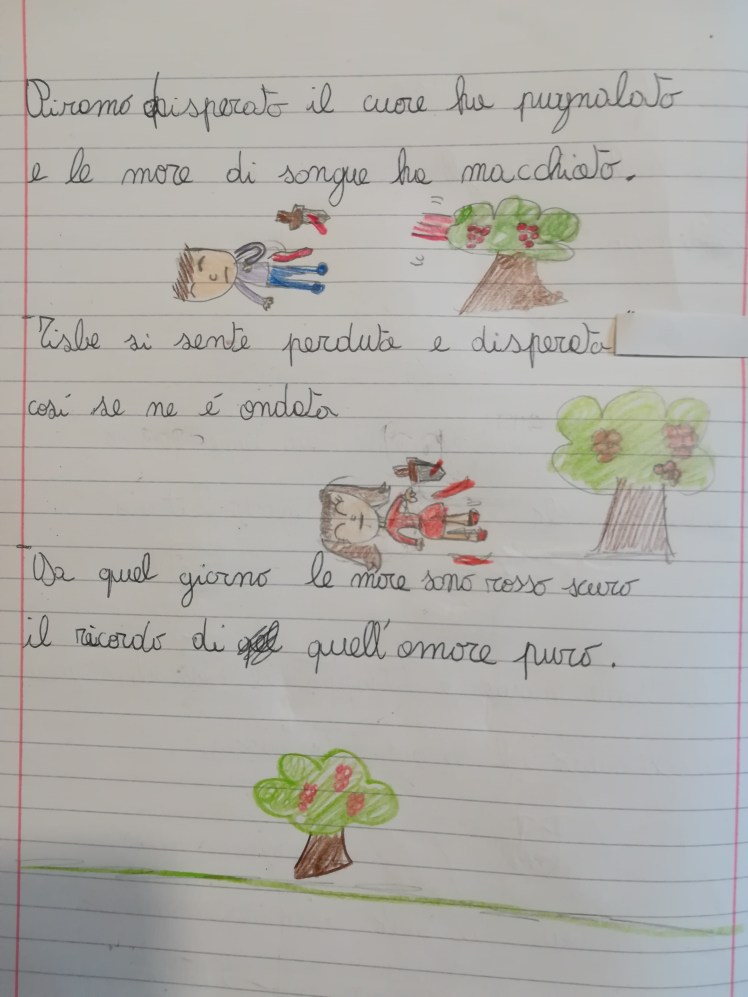 Piramo disperato il cuore ha pugnalato
e le more di sangue ha macchiato.
Tisbe si sente perduta e disperata
così se ne é andata
Da quel giorno le more sono rosso scuro
il ricordo di quell'amore puro.